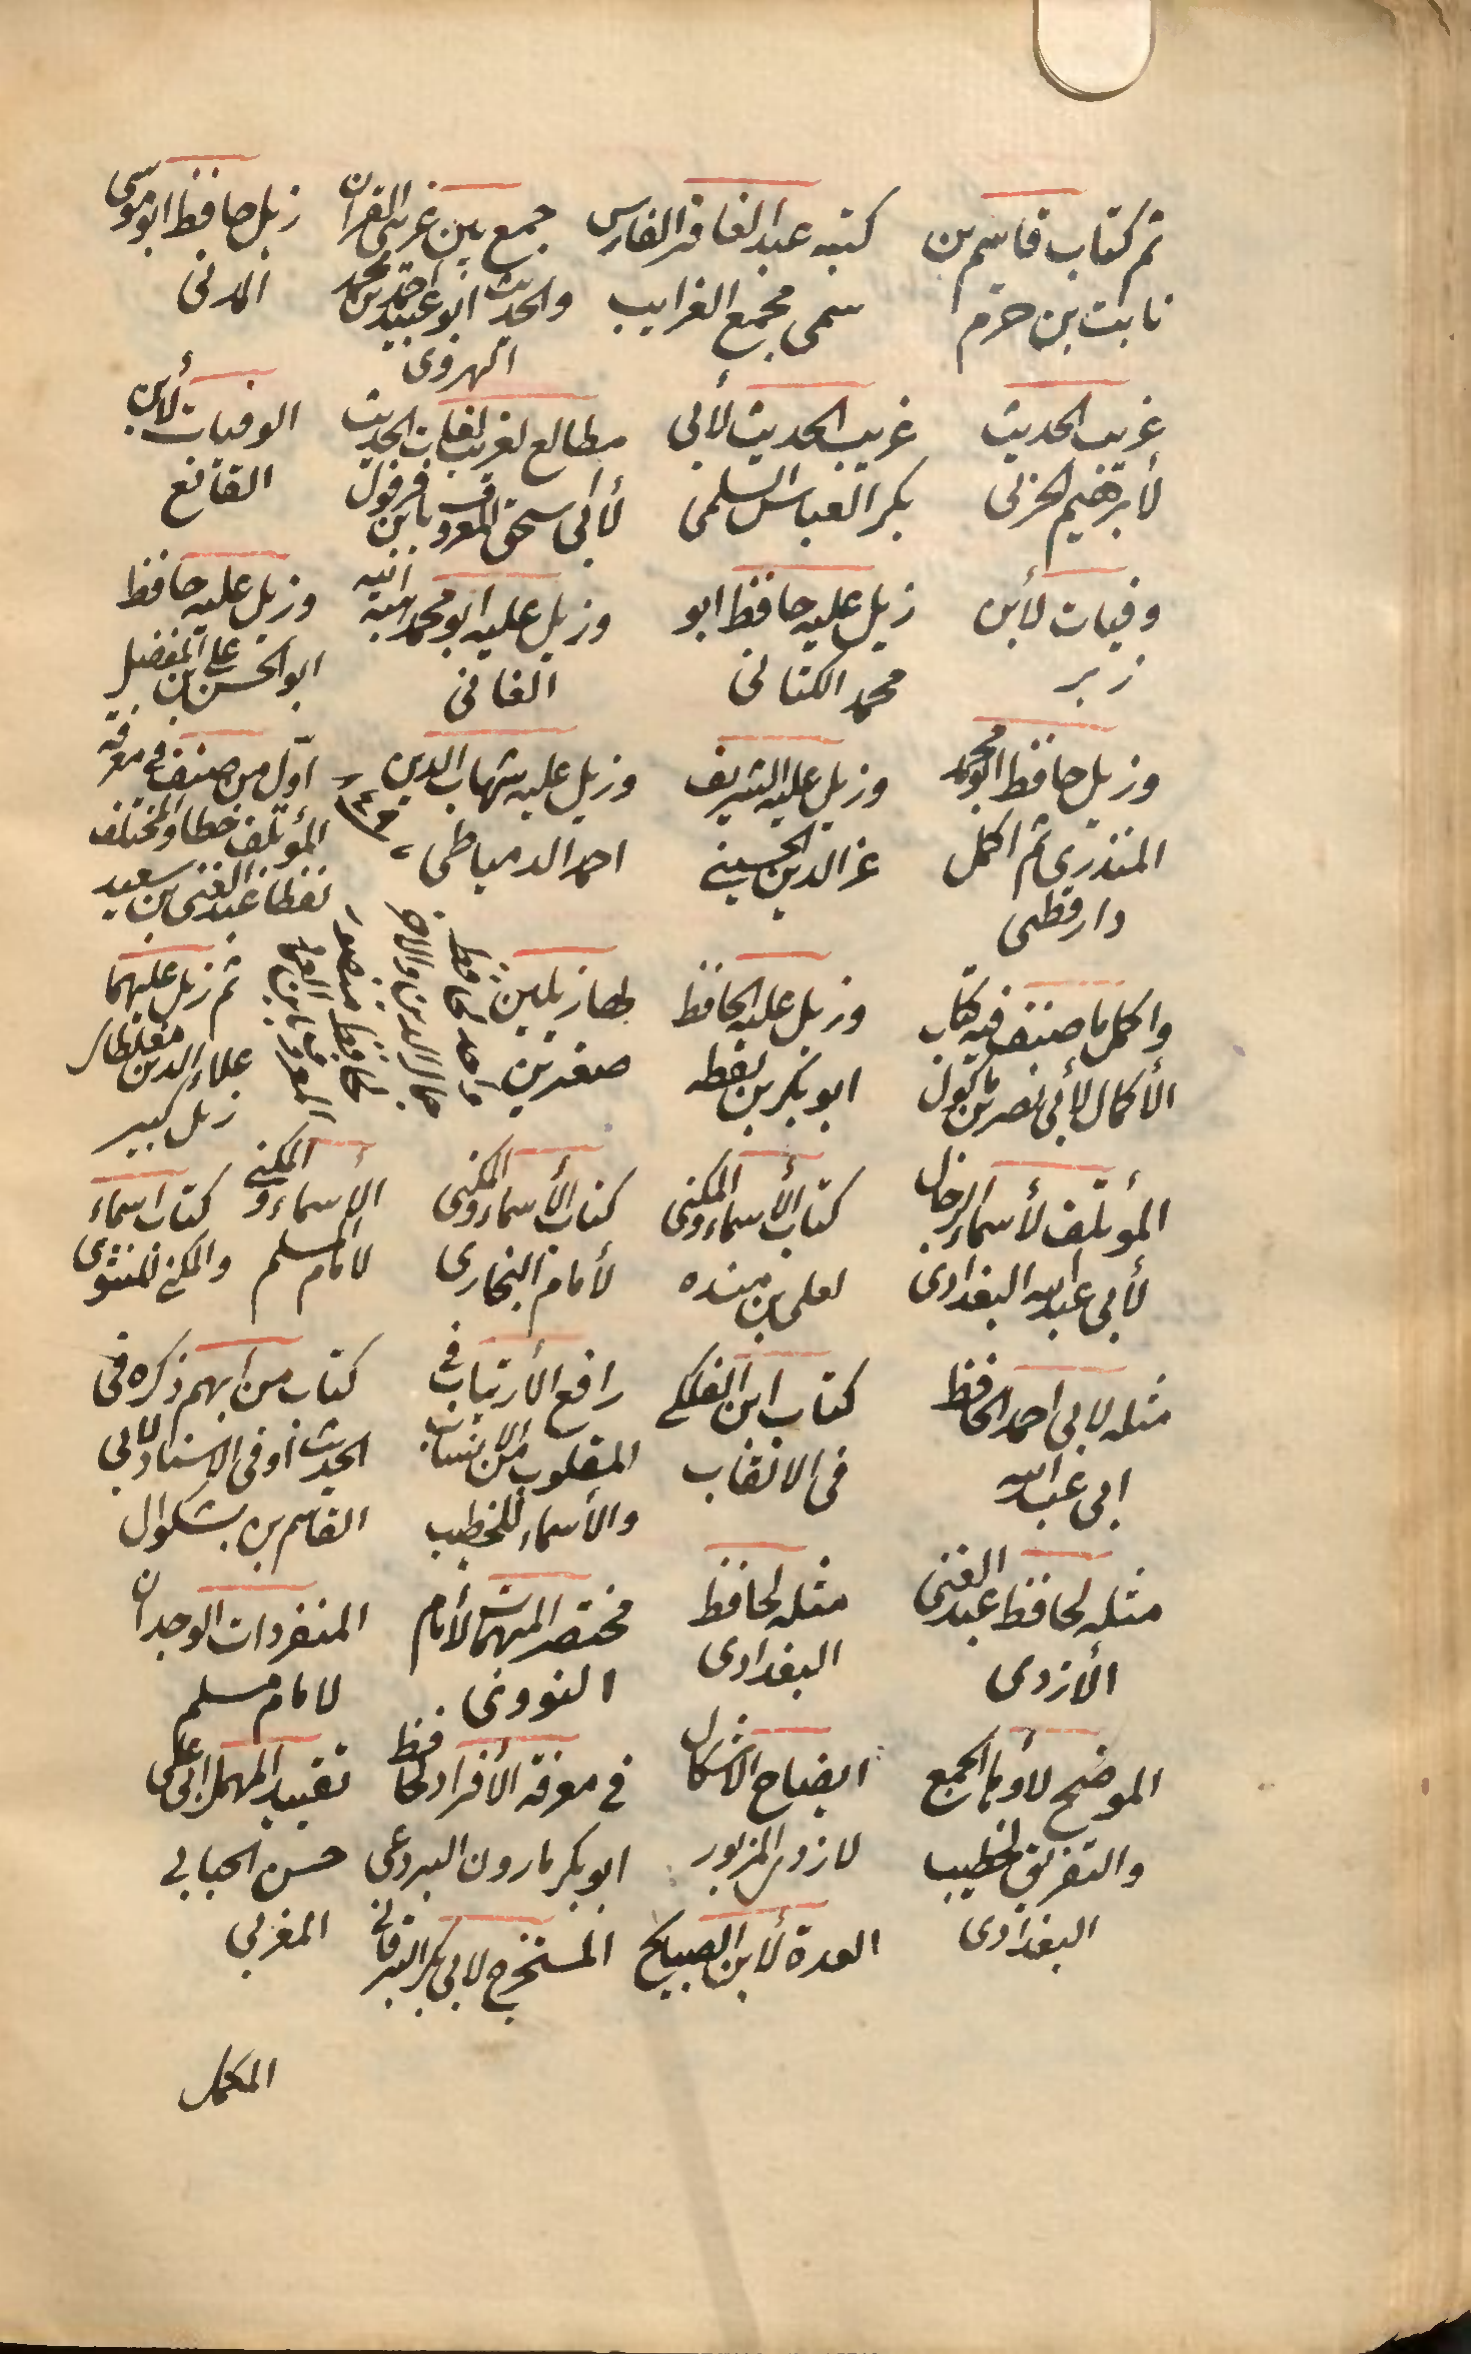 ثم كتاب قاسم بن
ثابت بن حزم
كتبه عبد الغافر الفارس
سمى مجمع الغرايب
جمع بين غريبى القران
والحديث ابو عبيد احمد بن محمد
الهروى
زيل حافظ ابو موسى
المدنى
غريب الحديث
لأبرهيم الحربى
غريب الحديث لأبى
بكر العباس السلمى
مطالع لغريب لغات الحديث
لأبى اسحق المعروف بابن قرقول
الوفيات لأبن
القانع
وفيات لأبن
زبر
زيل عليه حافظ ابو
محمد الكتانى
وزيل عليه ابو محمد هبة
الفانى
وزيل عليه حافظ
ابو الحسن على بن المفضل
وزيل حافظ ابو محمد
المنذرى ثم اكمل
دار قطنى
وزيل عليه الشريف
عز الدين الحسينى
وزيل عليه شهاب الدين
احمد الدمياطى
اول من صنف فى معرفة
المؤتلف خطا والمختلف
لفظا عبد الغنى بن سعيد
واكمل ما صنف فيه كتاب
الأكمال لأبى نصر بن ماكول
وزيل عليه الحافظ
ابو بكر بن نقطه
لها زيلين
صغيرين
واحد لحافظ
جمال الدين والاخر
لحافظ منصور
المعروف بابن العماد
ثم زيل عليهما
علاء الدين مغلطاى
زيل كبير
المؤتلف لأسماء الرجال
لأبى عبد الله البغدادى
كتاب الأسماء والمكنى
لعلى بن منده
كتاب الأسماء والمكنى
لأمام البخارى
الأسماء والمكنى
لامام المسلم
كتاب اسماء
والمكنى للمنثورى
مثله لابى احمد الحافظ
ابى عبد الله
كتاب ابن الفلكى
فى الالقاب
رافع الأرتياب فى
المقلوب من الانساب
والأسماء للخطيب
كتاب من ابهم ذكره فى
الحديث او فى الاسناد لابى
القاسم بن بشكوال
مثله لحافظ عبد الغنى
الأزدى
مثله لحافظ
البغدادى
مختصر المبهمات لأمام
النووى
المنفردات الوحدان
لامام مسلم
الموضح لأوهام الجمع
والتفريق لخطيب
البغدادى
ايضاح الاشكال
لازدى المزبور
فى معرفة الأفراد لحافظ
ابو بكر هارون البردعى
تقييد المهمل لابى على
حسن الجبابى
المغربى
العدة لأبن الصباح
المستخرج لابى بكر البرقانى
المكمل